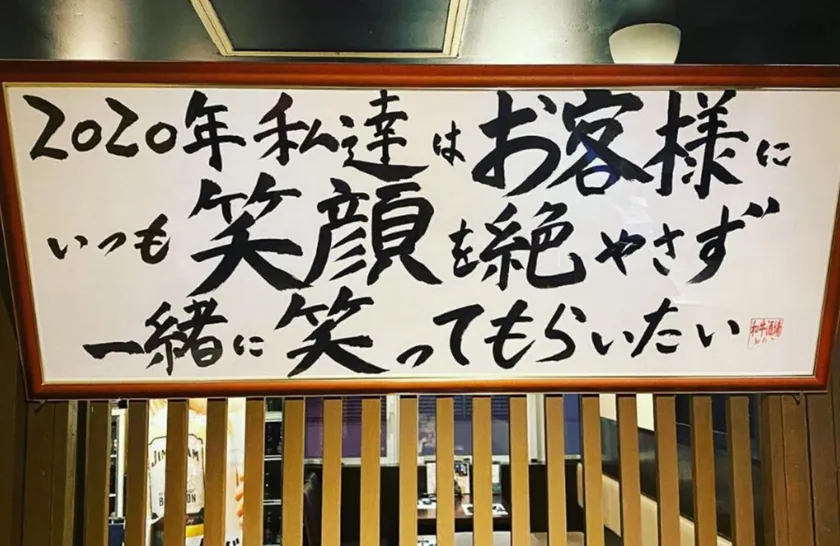 2020年私達はお客様に
いつも笑顔を絶やさず
一緒に笑ってもらいたい
和牛酒場
JIM BEAM
BOURBON